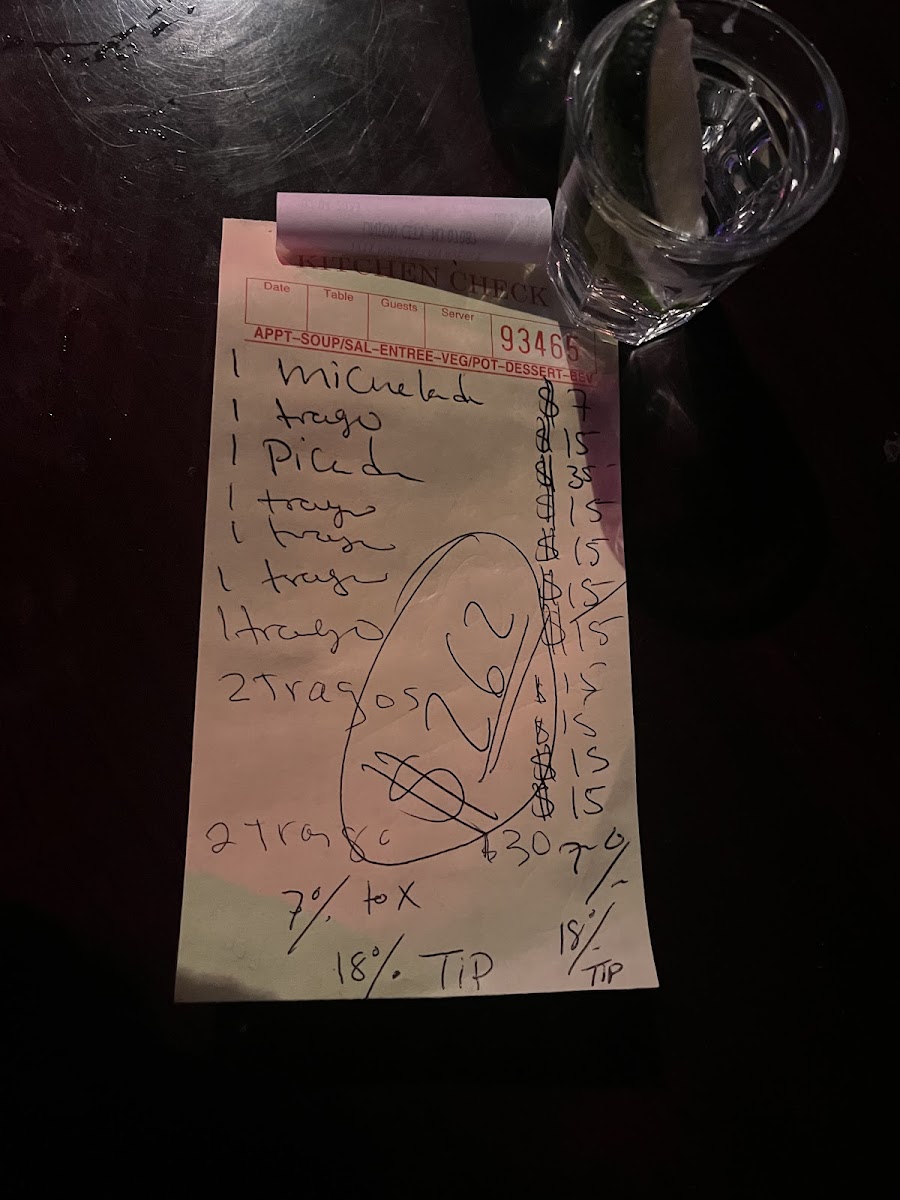 KITCHEN CHECK
Date Table Guests Server 93465
APPT-SOUP/SAL-ENTREE-VEG/POT-DESSERT-BEV
1 Michelada $ 7
1 trago $ 15
1 Picada $ 35
1 trago $ 15
1 trago $ 15
1 trago $ 15
1 trago $ 15
2 Tragos $ 15
$ 15
$ 15
$ 15
$ 262
2 Trago $30 7%
7% tax
18% TIP 18% TIP